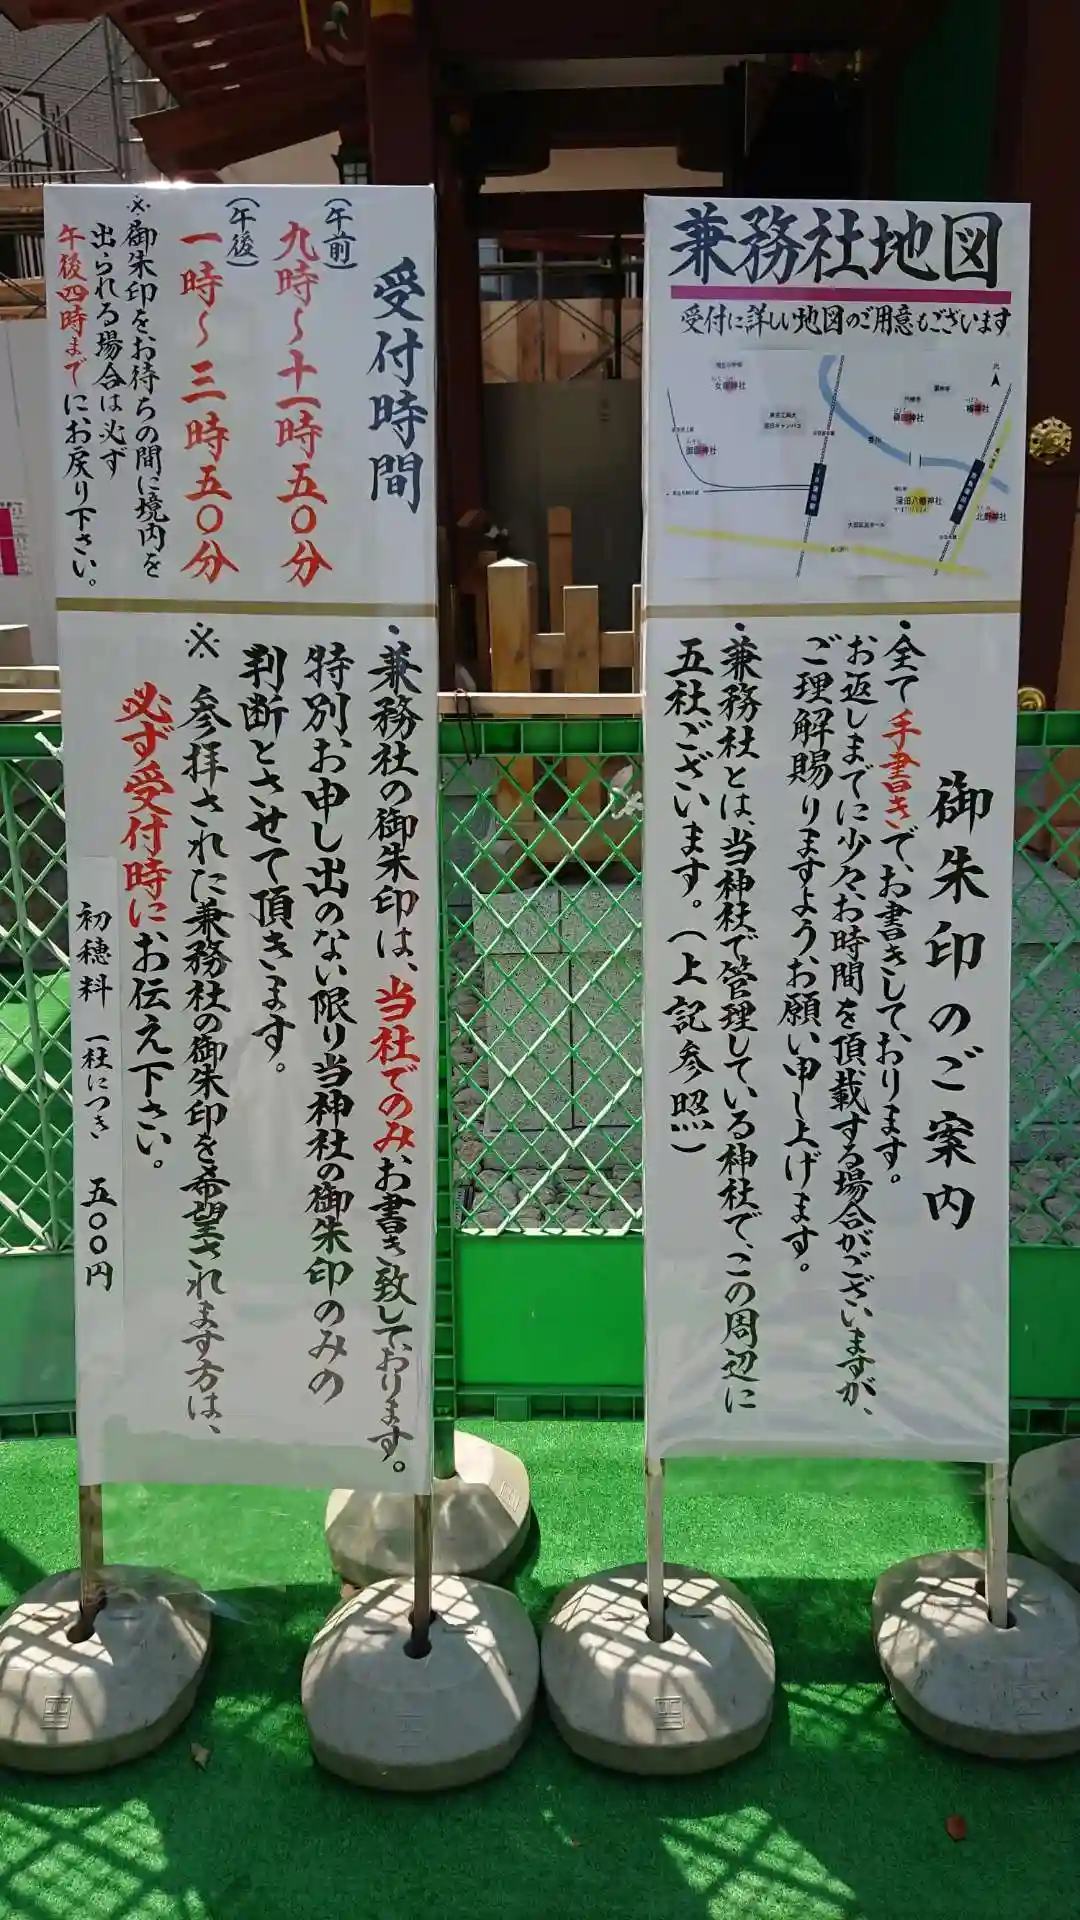 兼務社地図
受付に詳しい地図のご用意もございます
北
女塚神社
御園神社
椿神社
北野神社
御朱印のご案内
・全て手書きで、お書きしております。
お返しまでに少々お時間を頂載する場合がございますが、
ご理解賜りますよう、お願い申し上げます。
・兼務社とは、当神社で管理している神社で、この周辺に
五社ございます。(上記参照)
受付時間
(午前)
九時〜十一時五〇分
(午後)
一時〜三時五〇分
※御朱印をお待ちの間に境内を
出られる場合は必ず
午後四時までにお戻り下さい。
・兼務社の御朱印は、当社でのみお書き致しております。
特別お申し出のない限り当神社の御朱印のみの
判断とさせて頂きます。
※参拝されに兼務社の御朱印を希望されます方は、
必ず受付時にお伝え下さい。
初穂料 一社につき 五〇〇円